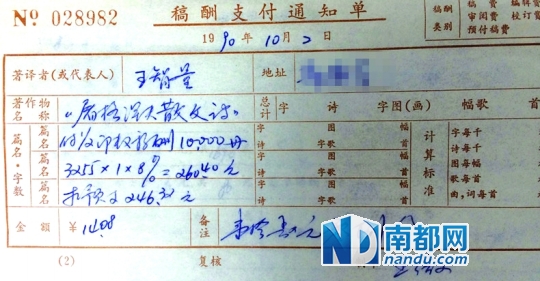 № 028982
稿酬支付通知单
稿酬
类别
稿费
编辑费
审阅费
校订费
预付稿费
1990年10月2日
著译者(或代表人) 王智量 地址
著作物名称
《屠格涅夫散文诗》
总计
字 诗 字图(画) 幅歌 首
篇名·字数
篇名
付发印数稿酬10,000册
字 诗 图 字歌 幅 首
篇名
3255×1×8%=260.40元
字 诗 图 字歌 幅 首
篇名
扣预支246.32元
字 诗 图 字歌 幅 首
计算标准
字每千
诗每千
图每幅
歌每首
曲、词每首
金额 ¥14.08 备注
南都网
nandu.com
(2) 复核